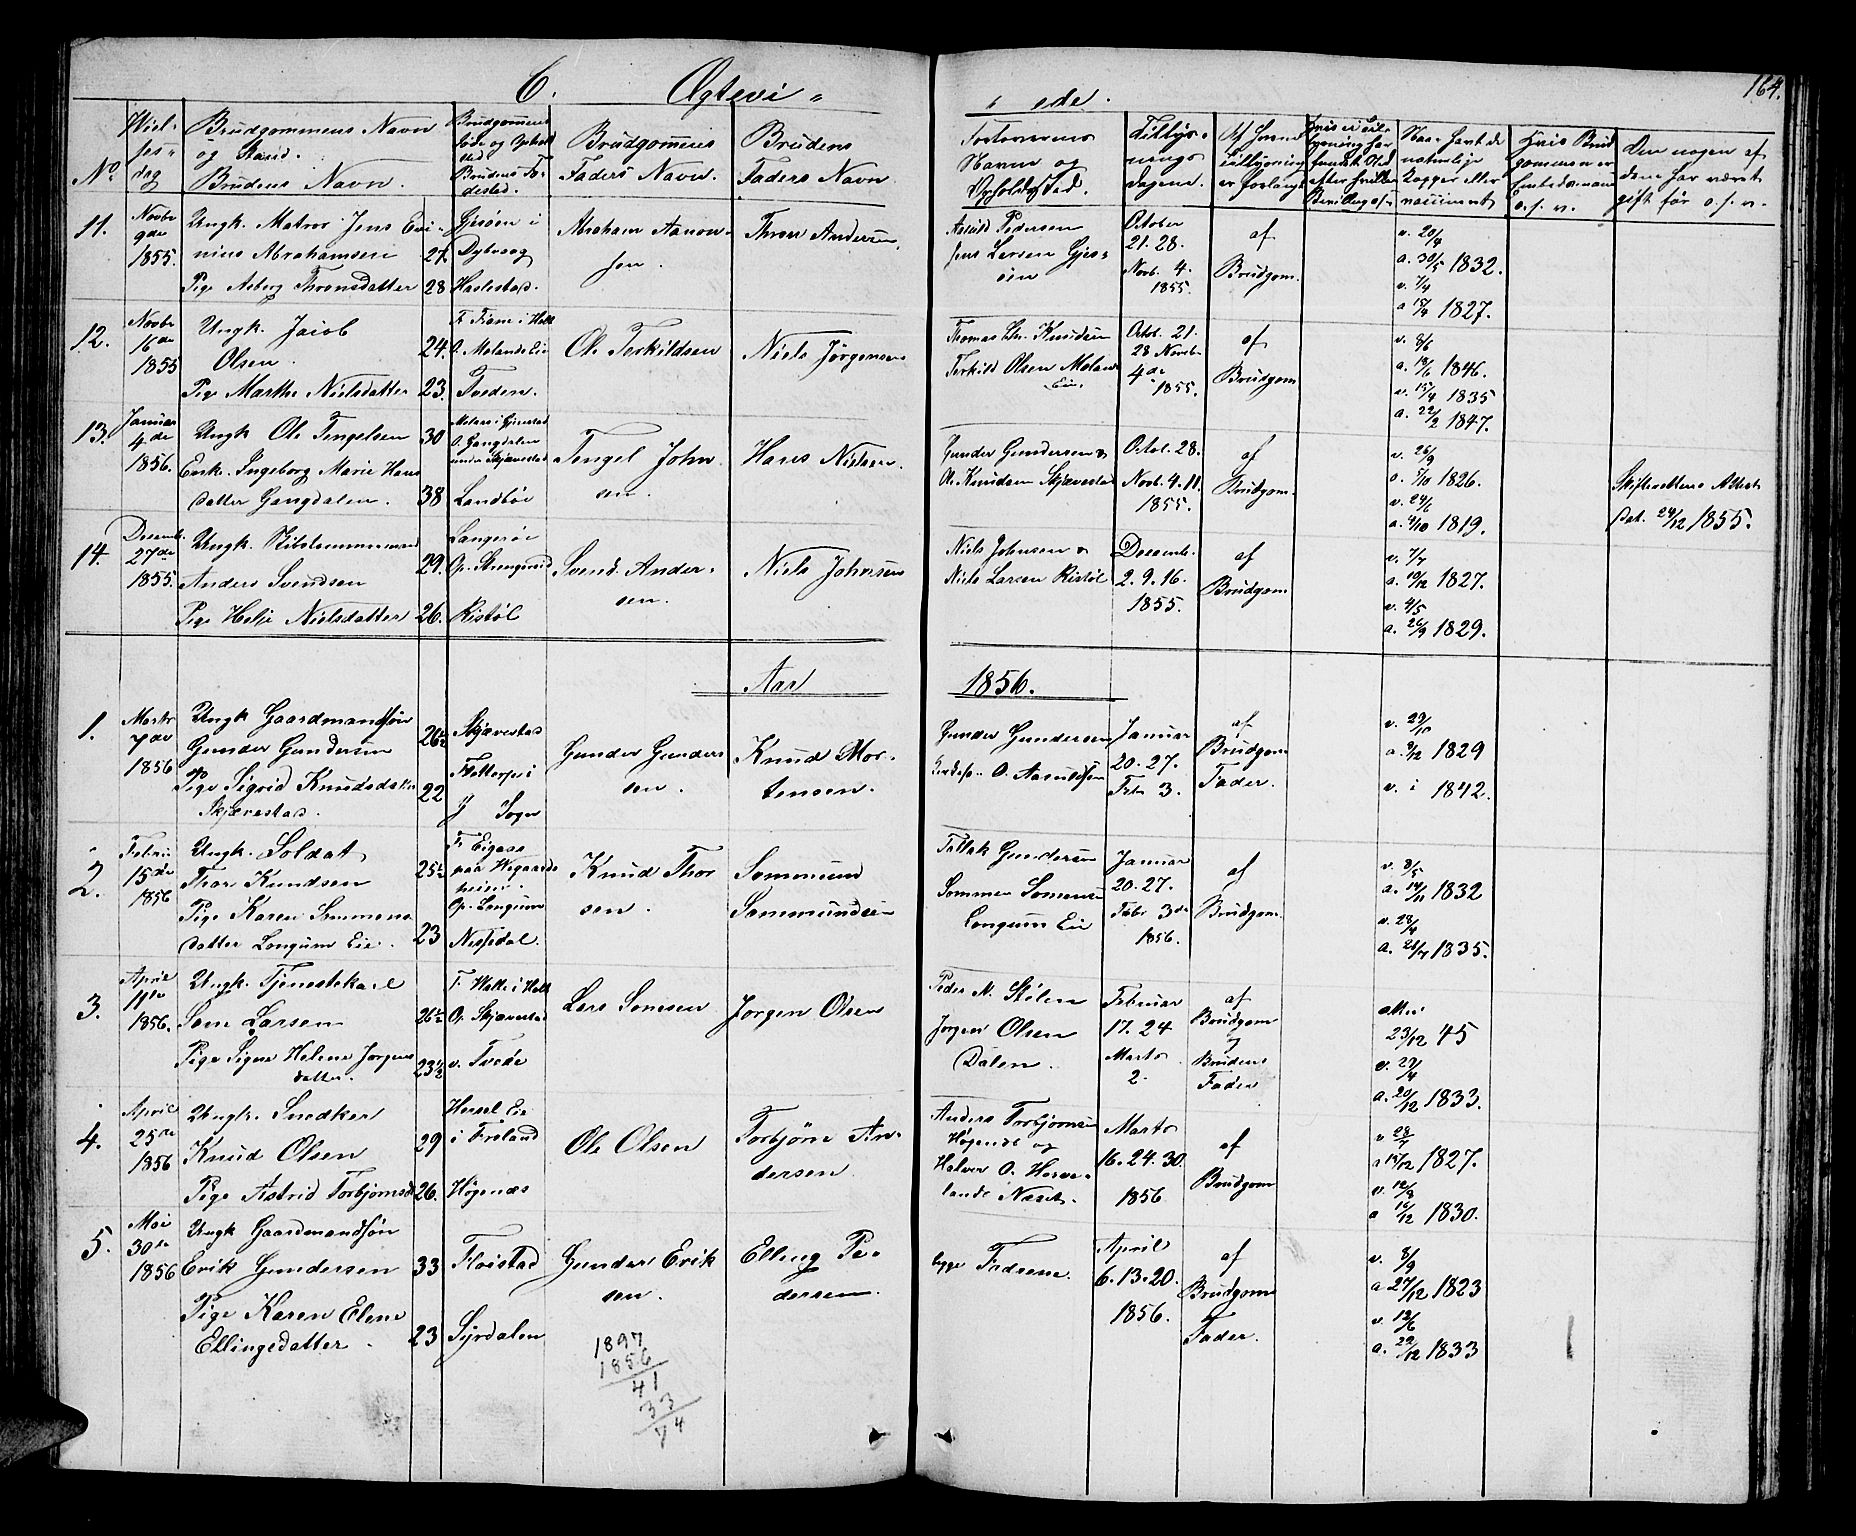 6. Ægtevi-
ede.
164.
No.
Viel-
ses-
dag
Brudgommens Navn
og Stand.
Brudens Navn.
Brudgommens
Føde og Opholds
sted
Brudens Fø-
dested.
Brudgommens
Faders Navn.
Brudens
Faders Navn
Forlovernes
Navne og
Opholdssted.
Tillys-
nings
dagene.
Af hvem
Tillysning
er forlangt
naturlige
Kopper eller
vaccineret
Hvis Brud
gommen er
Embedsmand
o.s.v.
Om nogen af
dem har været
gift før o.s.v.
11.
Novbr
9de
1855.
Ungk. Matros Jens Evi-
nius Abrahamsen 27.
Pige Aasberg Thronsdatter 28
Gjesøen i
Dybvaag
Haslestad.
Abraham Aanon-
sen.
Thron Andersen.
Pedersen
Jens Larsen Gjes-
øen
October
21. 28.
Novb. 4.
1855.
af
Brudgom.
v. 20/4
a. 30/5 1832.
v. 7/4
a 15/4 1827.
12.
Novbr
16de
1855
Ungk. Jacob
Olsen. 24.
Pige Marthe Nielsdatter 23.
F. Fiane i Holt
O. Molands Eie
Tveden.
Ole Terkildsen
Niels Jørgensen
Thomas Chr. Knudsen
Terkild Olsen Molands
Eie.
Octob. 21.
28 Novbr
4de
1855.
af
Brudgom.
v. 8/6
a. 18/6 1846.
v. 15/4 1835
a. 22/2 1847.
13.
Januar
4de
1856.
Ungk Ole Tengelsen 30
Enk. Ingeborg Marie Hans
datter Gangdalen. 38
Moland i Gjerestad
O. Gangdalen
under Skjævestad
Landbøe
Tengel John-
sen.
Hans Nielsen.
Gunder Gundersen &
O. Knudsen Skjævestad
Octob. 28.
Novb. 4. 11.
1855.
af
Brudgom.
v. 26/9
a. 7/10 1826.
v. 24/6
a. 4/10 1819.
Skifterettens Attest
dat. 24/12 1855.
14.
Decemb.
27de
1855.
Ungk. Skibstømmermand
Anders Svendsen 29.
Pige Helje Nielsdatter 26.
Langesøe
Op. Strengereid
Ristøl
Svend. Ander-
sen.
Niels Johnsen
Niels Johnsen &
Niels Larsen Ristøl
Decemb.
2. 9. 16.
1855.
af
Brudgom
v. 7/7
a. 19/12 1827.
v. 4/5
a. 26/9 1829.
Aar 1856.
1.
Marts
7de
1856
Ungk Gaardmandssøn
Gunder Gundersen 26½
Pige Sigrid Knudsdatter 22
Skjævestad.
Skjævestad
i
Sogn
Gunder Gunder-
sen.
Knud Mor-
tensen.
Gunder Gundersen
O. Aasuldsen
Januar
20. 27.
Febr 3.
af
Brudgom
Fader.
v. 29/10
a. 9/12 1829
v. i 1842.
2.
Febru
15de
1856
Ungk. Soldat
Thor Knudsen 25½
Pige Karen Sommens
datter Longum Eie. 23
F. Eigaas
paa Wegaards
heien.
Op. Longum
Nessedal.
Knud Thor
sen.
Sommund
Sommundsen
Tallak Gundersen
Sommen Somensen
Longums Eie
Januar
20. 27.
Febr 3de
1856.
af
Brudgom.
v. 8/5
a. 14/11 1832
v. 28/4
a. 21/7 1835.
3.
April
11te
1856.
Ungk. Tjenestekarl
Som Larsen 26½
Pige Signe Helene Jørgens
datter. 23½
F. Walle i Holt
Op. Skjævestad
v. Tvede
Lars Somsen
Jørgen Olsen
Peder N. Stølen
Jørgen Olsen
Dalen.
Februar
17. 24
Marts
2.
af
Brudgom
og
Brudens
Fader
attes
23/12 45
v. 29/4
a. 20/12 1833.
4.
April
25de
1856
Ungk. Snedker
Knud Olsen 29
Pige Astrid Torbjørnsd 26.
Hersel Eie
i Froland
Høgenæs
Ole Olsen
Torbjørn An-
dersen
Anders Torbjørnsen
Høgenæs og
Halvor O. Herve-
lands Næset.
Marts
16. 24. 30.
1856
af
Brudgom
v 28/7
a 15/12 1827.
v. 12/8
a 16/12 1830.
5.
Mai
30te
1856
Ungk Gaardmandssøn
Erik Gundersen 33
Pige Karen Elene
Ellingsdatter. 23
Fløistad
Syrdalen
Gunder Erik
sen.
Elling Pe-
dersen.
begge Fædrene.
April
6. 13. 20.
1856.
af
Brudgom
Fader.
v. 8/9
a 27/12 1823
v. 13/6
a. 29/12 1833
1897
1856
41
33
74